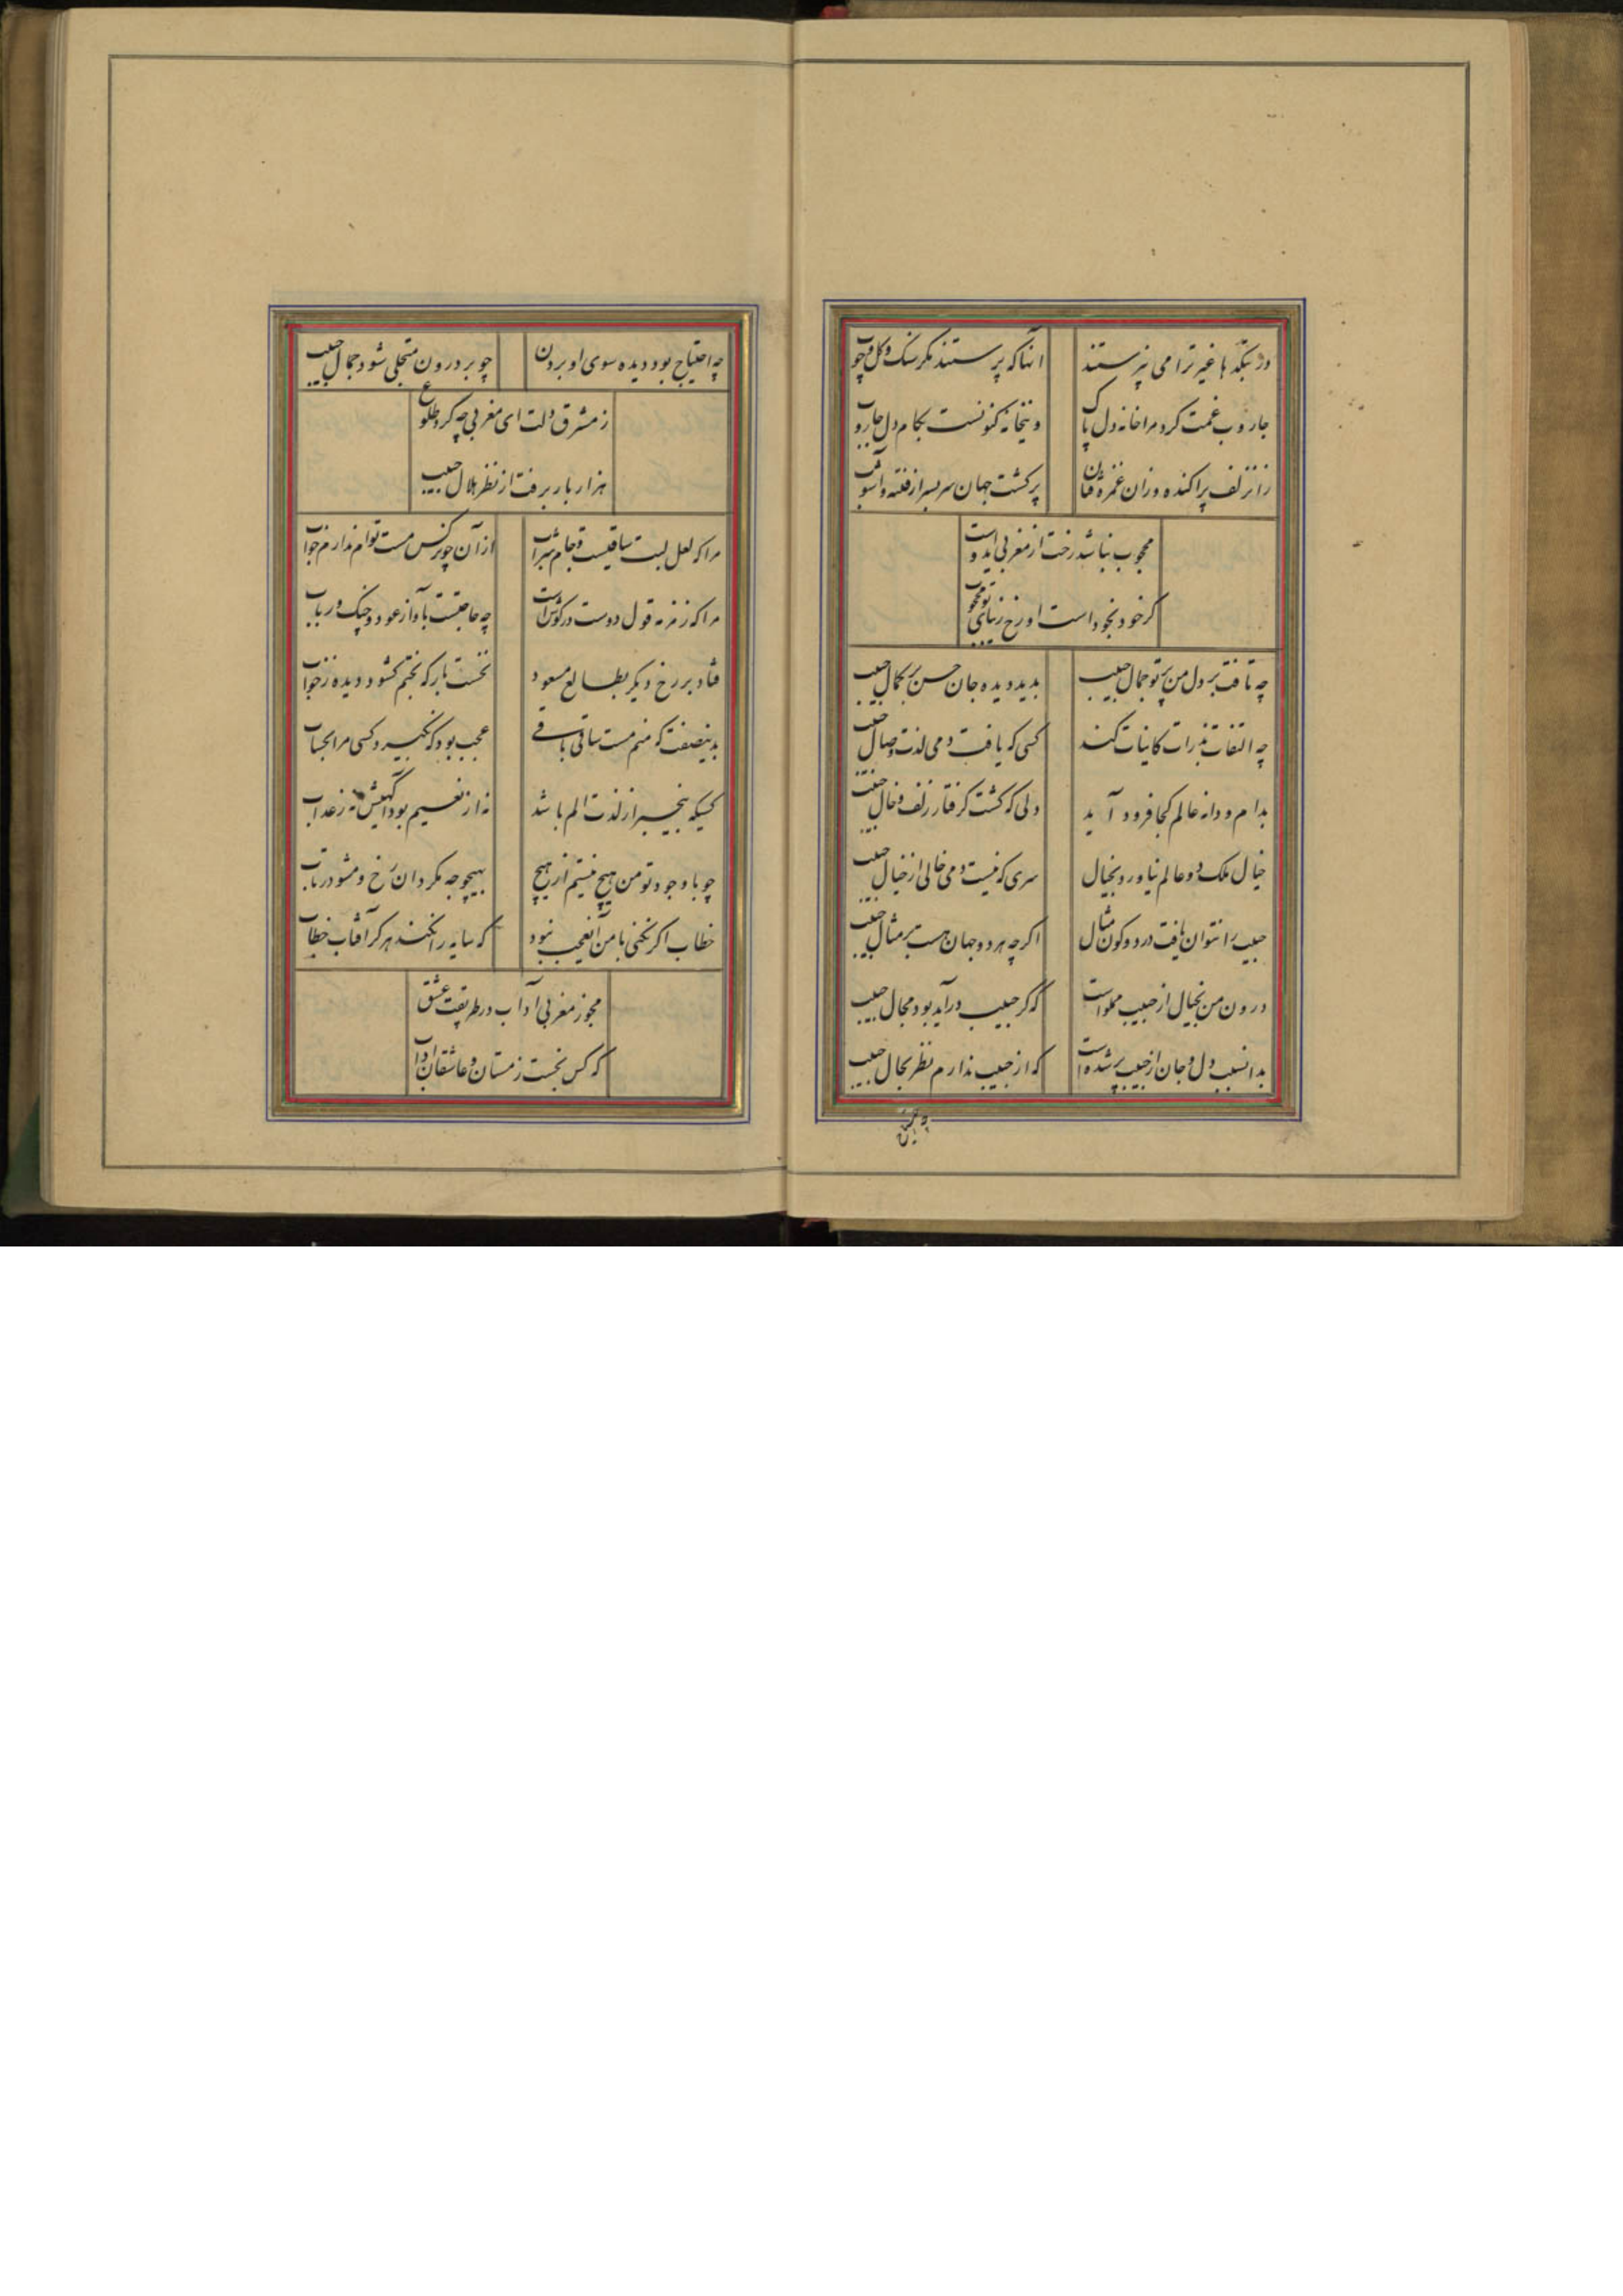 در بتکدها غیر ترا می نپرستند
انها که پرستند مکر سنک و کل و چوب
جاروب غمت کرد مرا خانه دل پاک
وین خانه کنونست بکام دل جاروب
زان زلف پراکنده وزان غمزه فتان
پر کشت جهان سر بسر از فتنه و آشوب
محجوب نباشد رخت از مغربی ایدوست
کر خود بخود است او رخ زیبای تو محجوب
چه تافت بر دل من پرتو جمال حبیب
بدید دیده جان حسن بر کمال حبیب
چه التفات بذرات کاینات کند
کسی که یافت دمی لذت وصال حبیب
بدام و دانه عالم کجا فرود آید
دلی که کشت کرفتار زلف و خال حبیب
خیال ملک دو عالم نیاورد بخیال
سری که نیست دمی خالی از خیال حبیب
حبیب را نتوان یافت در دو کون مثال
اکرچه هر دو جهان هست بر مثال حبیب
درون من بخیال از حبیب مملو است
که کر حبیب درآید بود مجال حبیب
بدانسبب دل و جان از حبیب پر شده است
که از حبیب ندارم نظر بحال حبیب
چه احتیاج بود دیده سوی او بردن
چو بر درون متجلی شود جمال حبیب
ز مشرق دلت ای مغربی چه کرد طلوع
هزار بار برفت از نظر هلال حبیب
مرا که لعل لبت ساقیست و جام شراب
از آن چو نرکس مست توام ندارم خواب
مرا که زمزمه قول دوست در کوش است
چه حاجتست بآواز عود و چنک و رباب
فتاد بر رخ دیکر بطالع مسعود
نخست بار که بختم کشود دیده ز خواب
بدینصفت که منم مست ساقی باقی
عجب بود که نکیرد کسی مرا بحساب
کسیکه بیخبر از لذت الم باشد
نه از نعیم بود آکهیش نه ز عذاب
چو با وجود تو من هیچ نیستم از هیچ
بهیچوجه مکردان رخ و مشو در تاب
خطاب اکر نکنی با من آنعجب نبود
که سایه را نکند هرکز آفتاب خطاب
مجوز مغربی آداب در طریقت عشق
که کس نجست ز مستان و عاشقان آداب